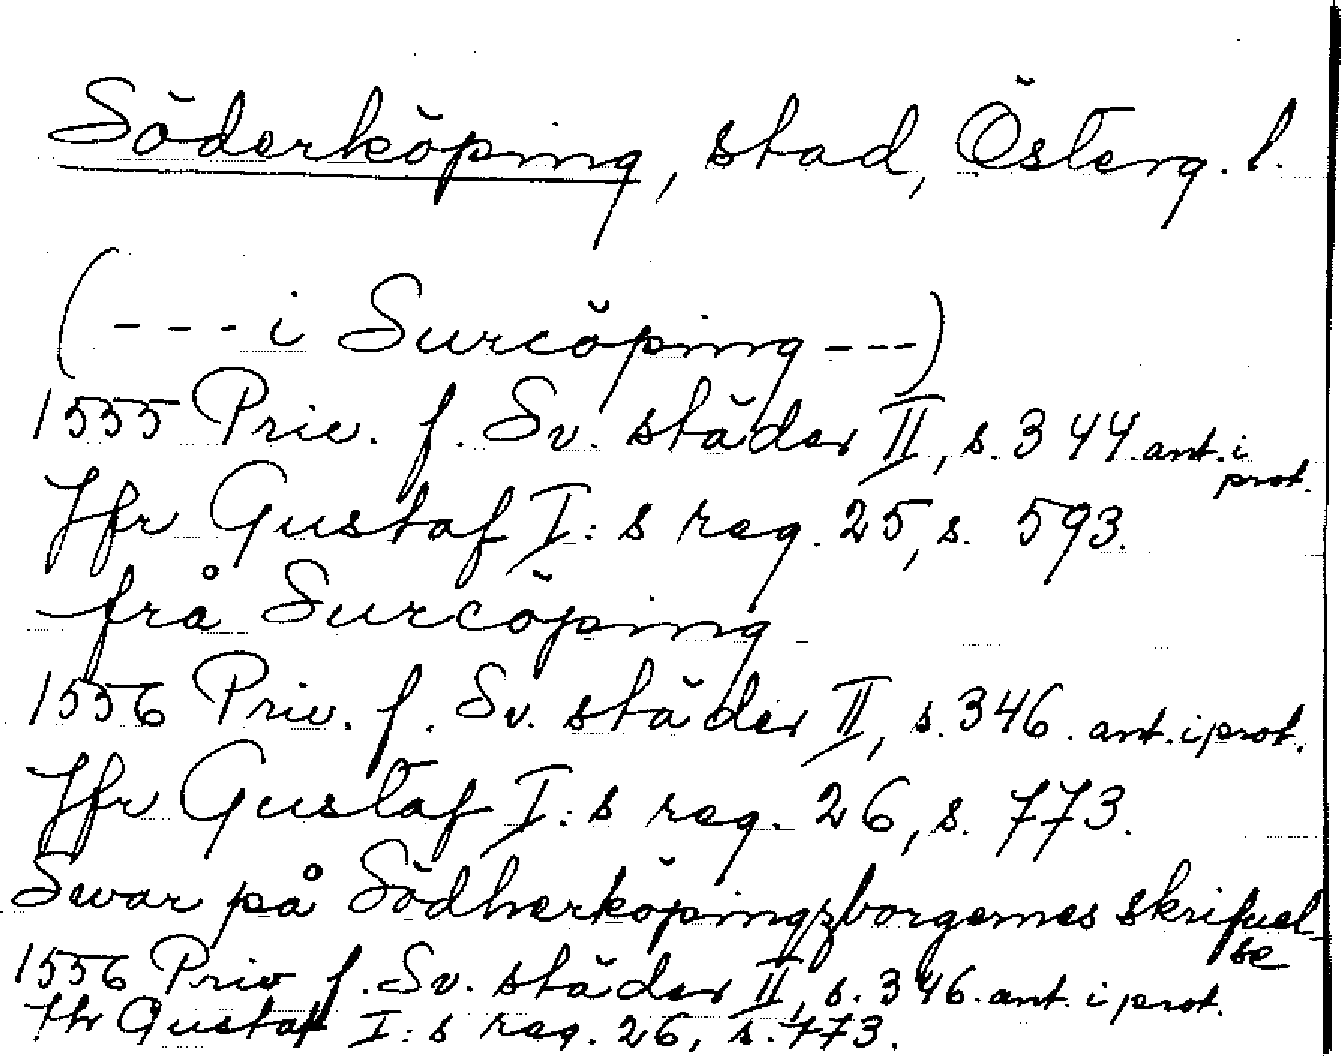 Söderköping, stad, Österg. l.
(--- i Surcöping ---)
1555 Priv. f. Sv. städer II, s. 344 ant. i prot.
Jfr Gustaf I:s reg. 25, s. 593.
frå Surcöping
1556 Priv. f. Sv. städer II, s. 346. ant. i prot.
Jfr Gustaf I:s reg. 26, s. 773.
Swar på Södherköpingzborgernes skrifuelse
1556 Priv f. Sv. städer II, s. 346. ant. i prot.
Jfr Gustaf I:s reg. 26, s. 773.